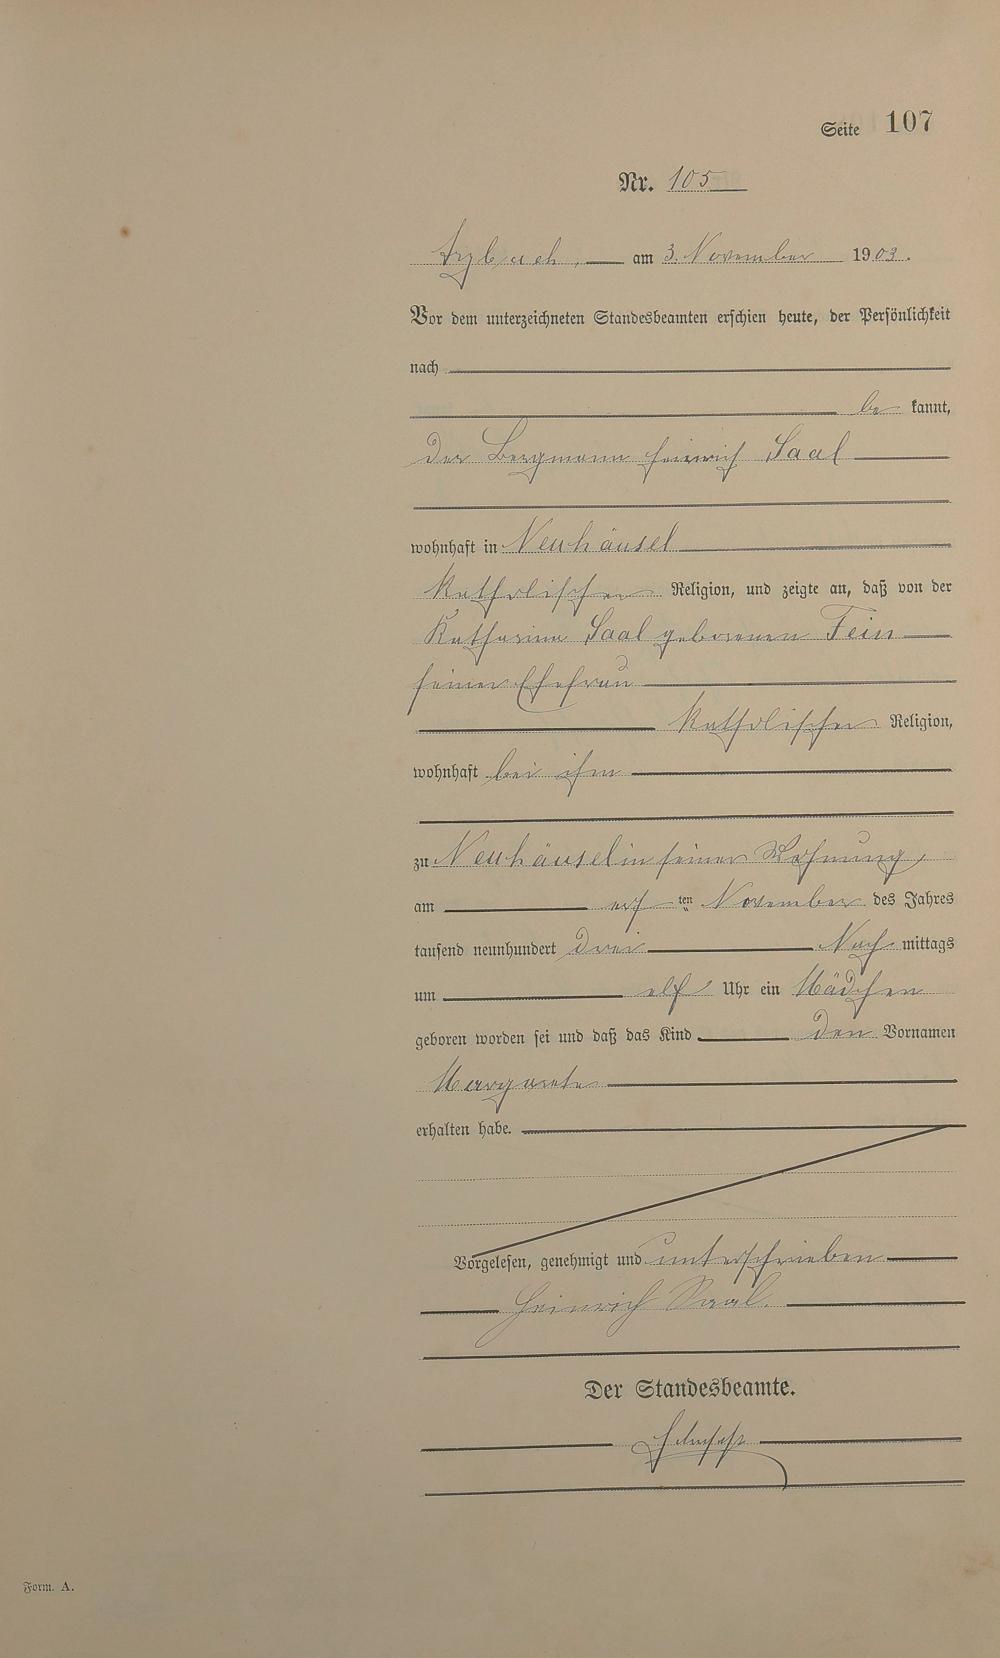 Seite 107
Nr. 105
Arzbach, am 3. November 1903.
Vor dem unterzeichneten Standesbeamten erschien heute, der Persönlichkeit
nach
be kannt,
der Bergmann Heinrich Saal
wohnhaft in Neuhäusel
katholischer Religion, und zeigte an, daß von der
Katharina Saal geborenen Fein
seiner Ehefrau
katholischer Religion,
wohnhaft bei ihm
zu Neuhäusel in seiner Wohnung,
am ersten November des Jahres
tausend neunhundert drei Nach mittags
um elf Uhr ein Mädchen
geboren worden sei und daß das Kind den Vornamen
Margarete
erhalten habe.
Vorgelesen, genehmigt und unterschrieben
Heinrich Saal.
Der Standesbeamte.
Form. A.